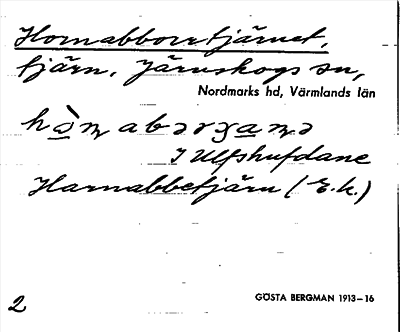 Hornabborrtjärnet,
tjärn, Järnskogs sn,
Nordmarks hd, Värmlands län
I Ulfshufdane
Harnabbetjärn (E.k.)
2 GÖSTA BERGMAN 1913–16